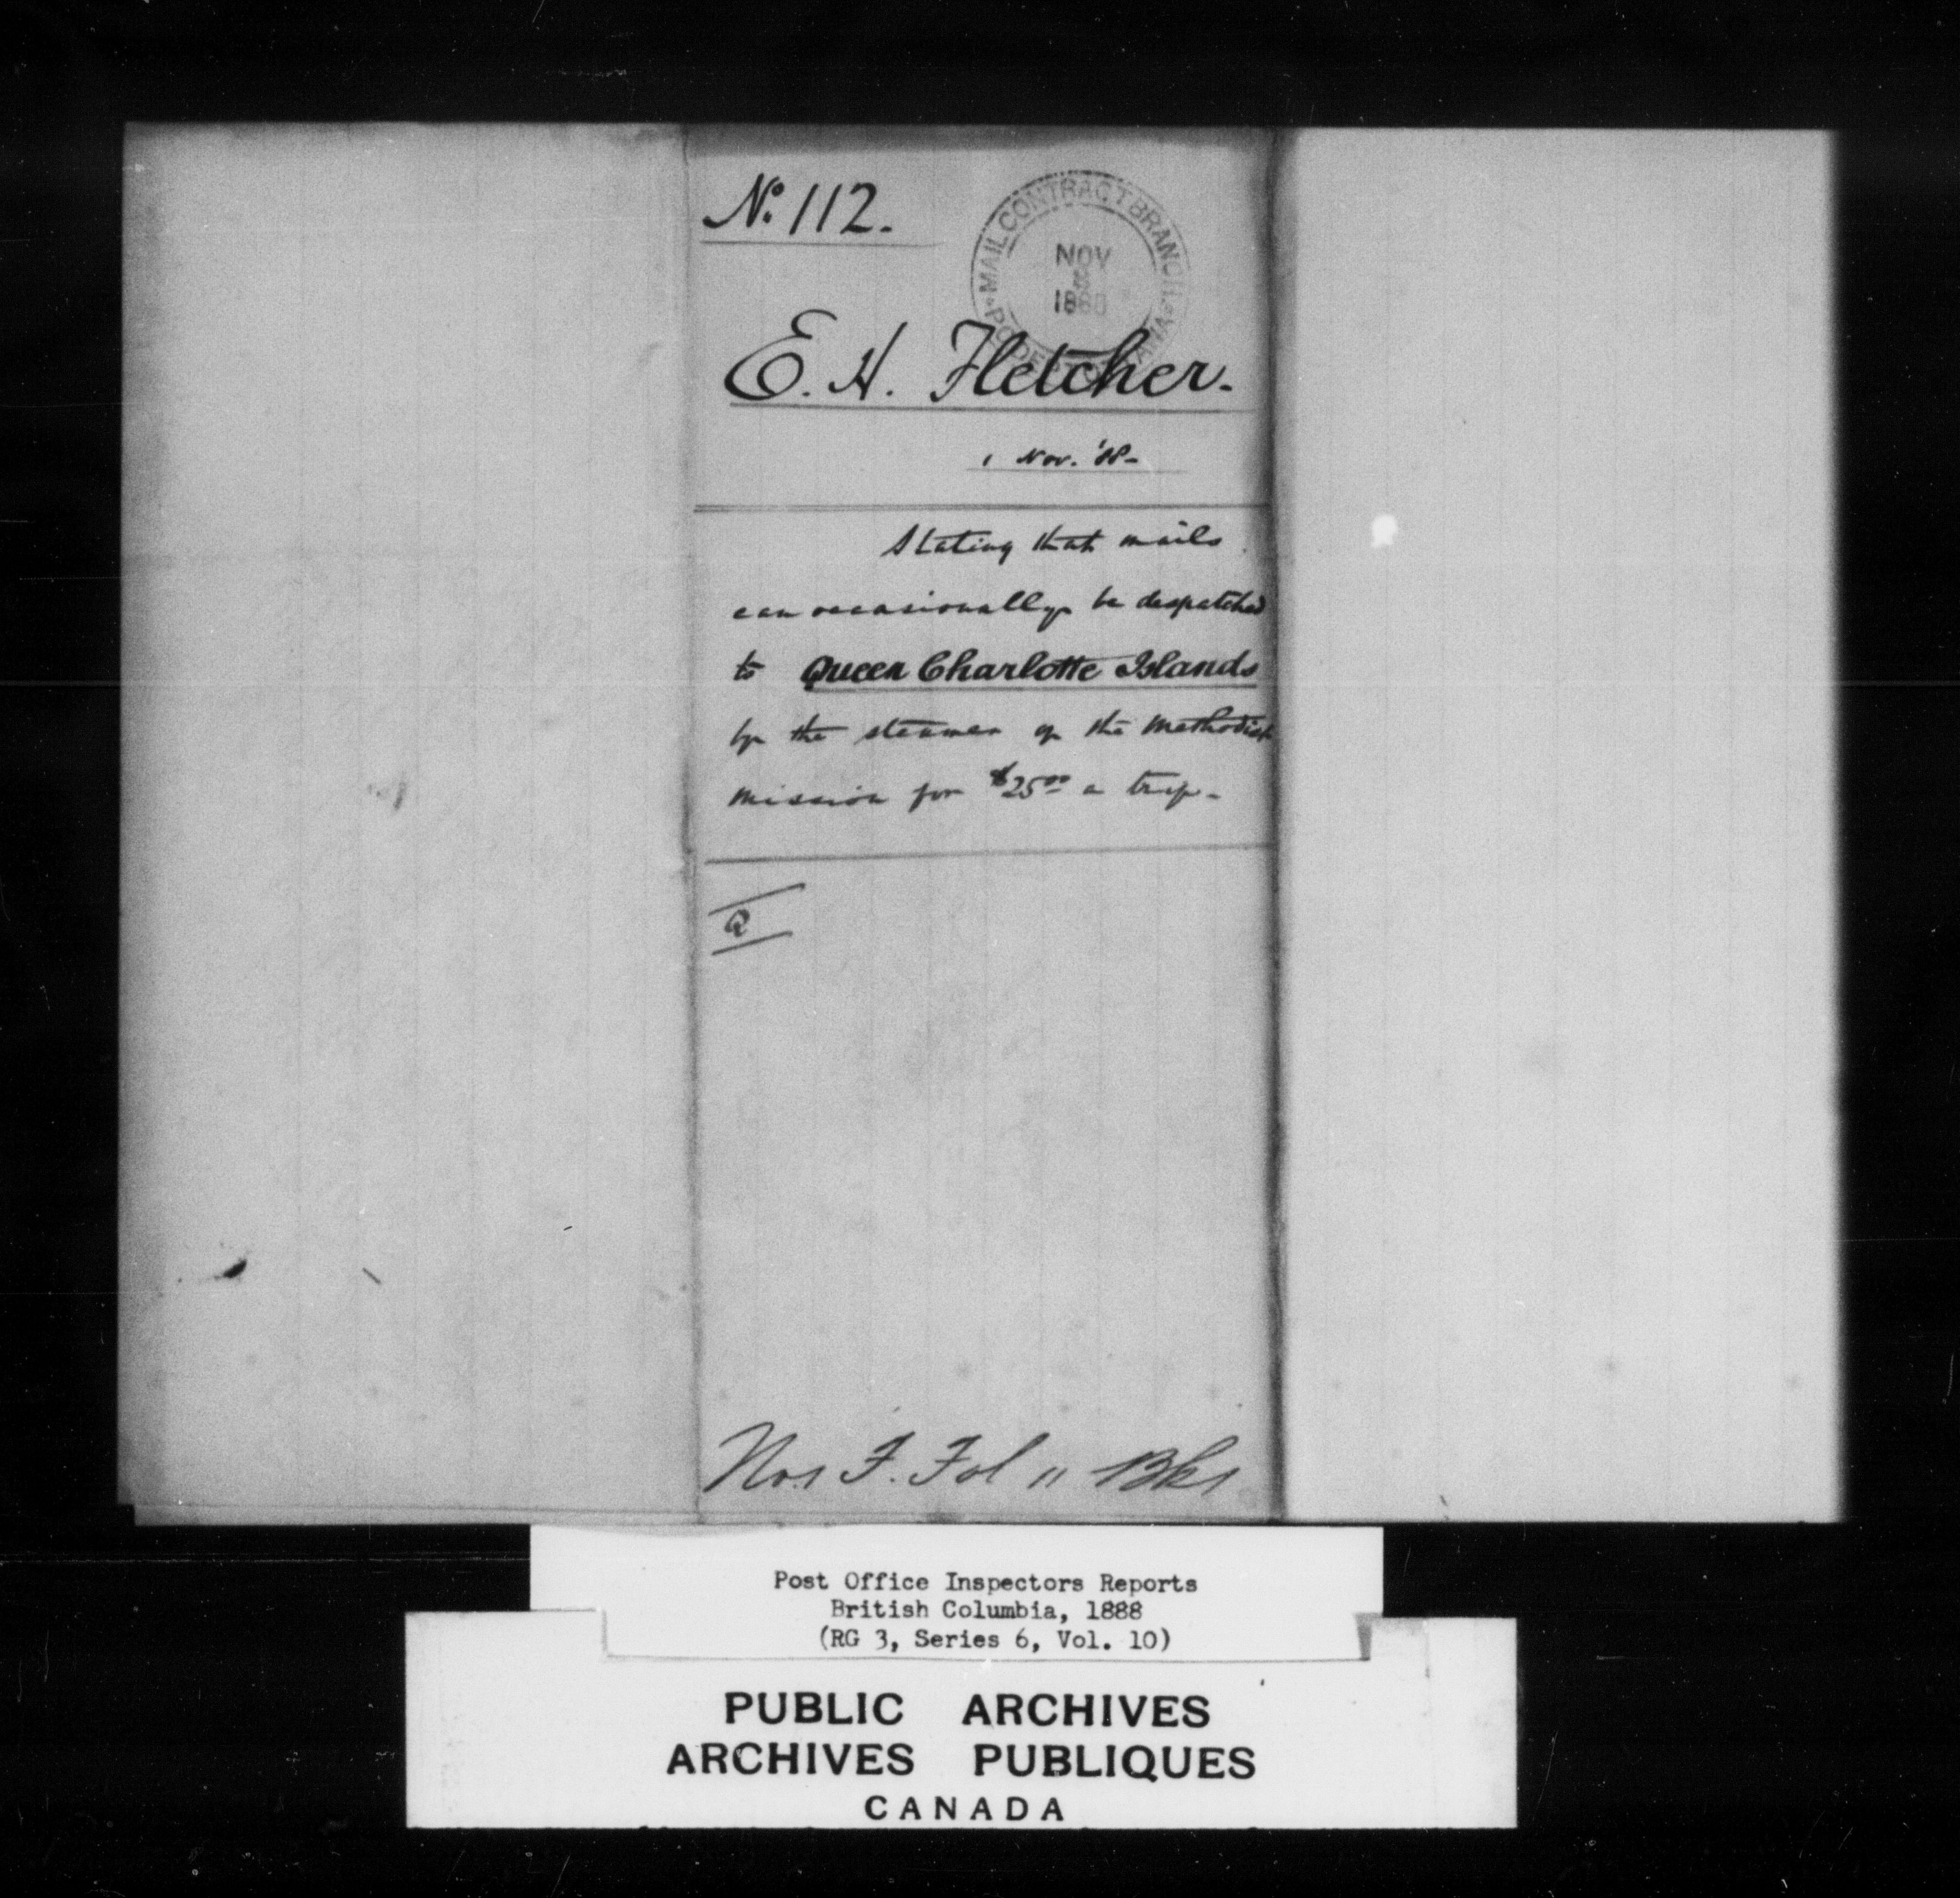 No. 112.
MAIL CONTRACT BRANCH
NOV
1888
E. H. Fletcher.
1 Nov. '88-
Stating that mails
can occasionally be despatched
to Queen Charlotte Islands
by the steamer of the Methodist
Mission for $25.00 a trip-
Q
Fol 11
Post Office Inspectors Reports
British Columbia, 1888
(RG 3, Series 6, Vol. 10)
PUBLIC ARCHIVES
ARCHIVES PUBLIQUES
CANADA